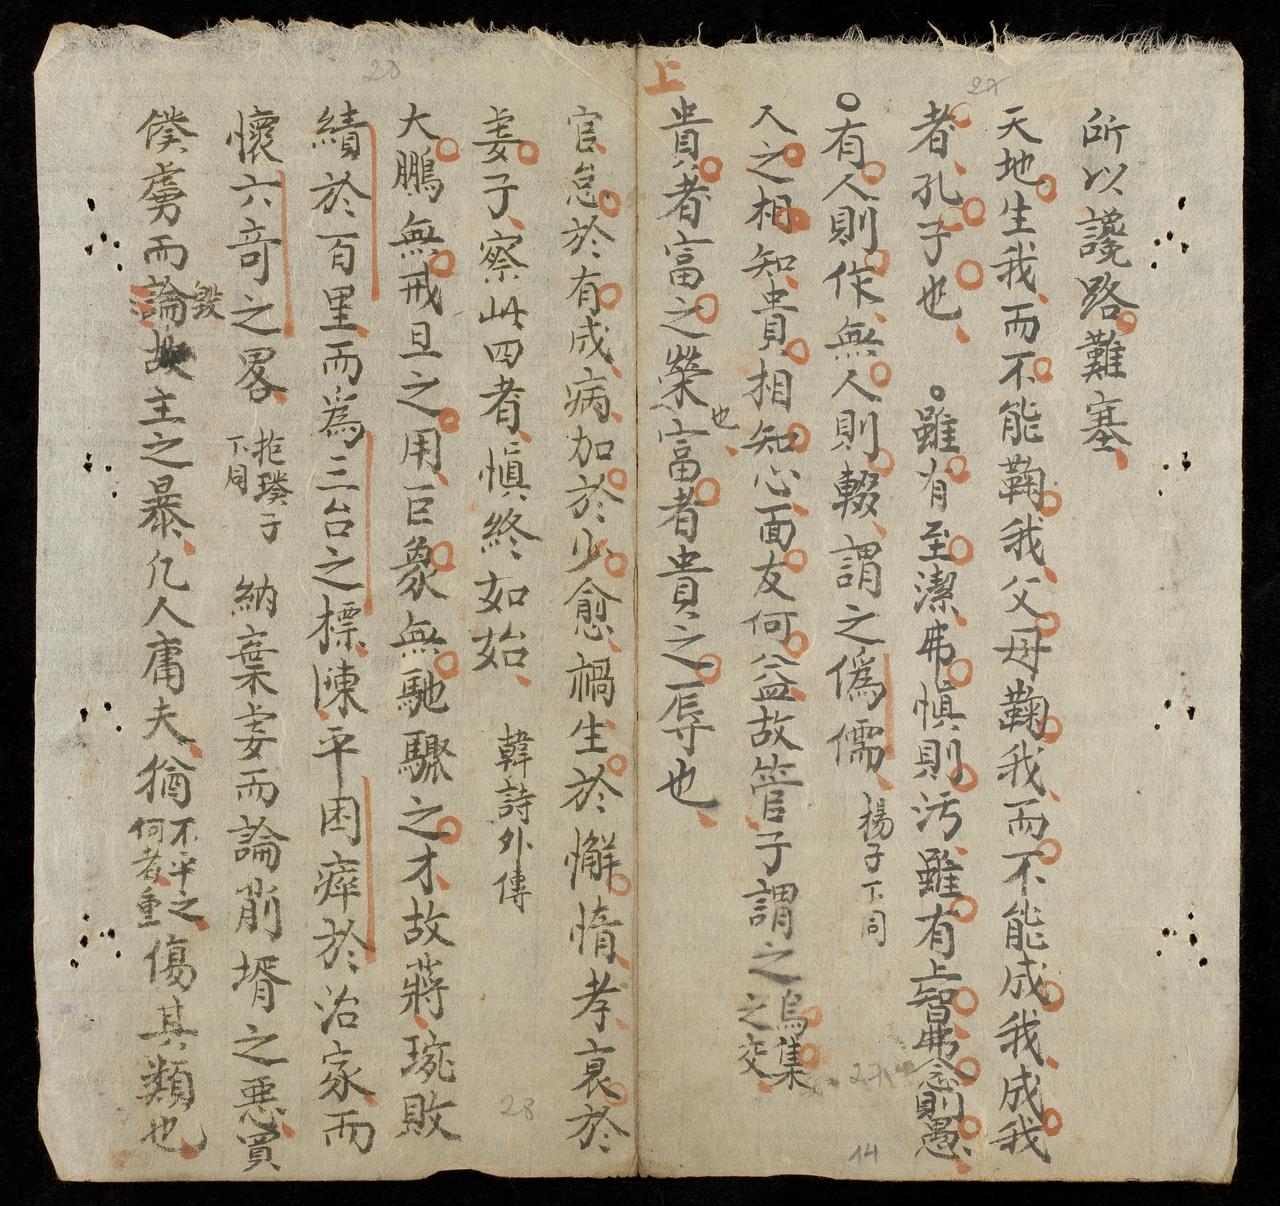 所以讒路難塞
天地生我而不能鞠我父母鞠我而不能成我成我
者孔子也 雖有至潔弗慎則污雖有上智弗念則愚
有人則作無人則輟謂之偽儒 楊子下同
人之相知貴相知心面友何益故管子謂之烏集之交
上
貴者富之榮也富者貴之辱也
官怠於有成病加於少愈禍生於懈惰孝衰於
妻子察此四者慎終如始 韓詩外傳
大鵬無戒旦之用巨象無馳驟之才故蔣琬敗
績於百里而為三台之標陳平困瘁於治家而
懷六奇之畧 抱璞子下同 納棄妻而論前壻之惡買
僕虜而論毀故主之暴凡人庸夫猶不平之何者重傷其類也
27
28
28
27
14